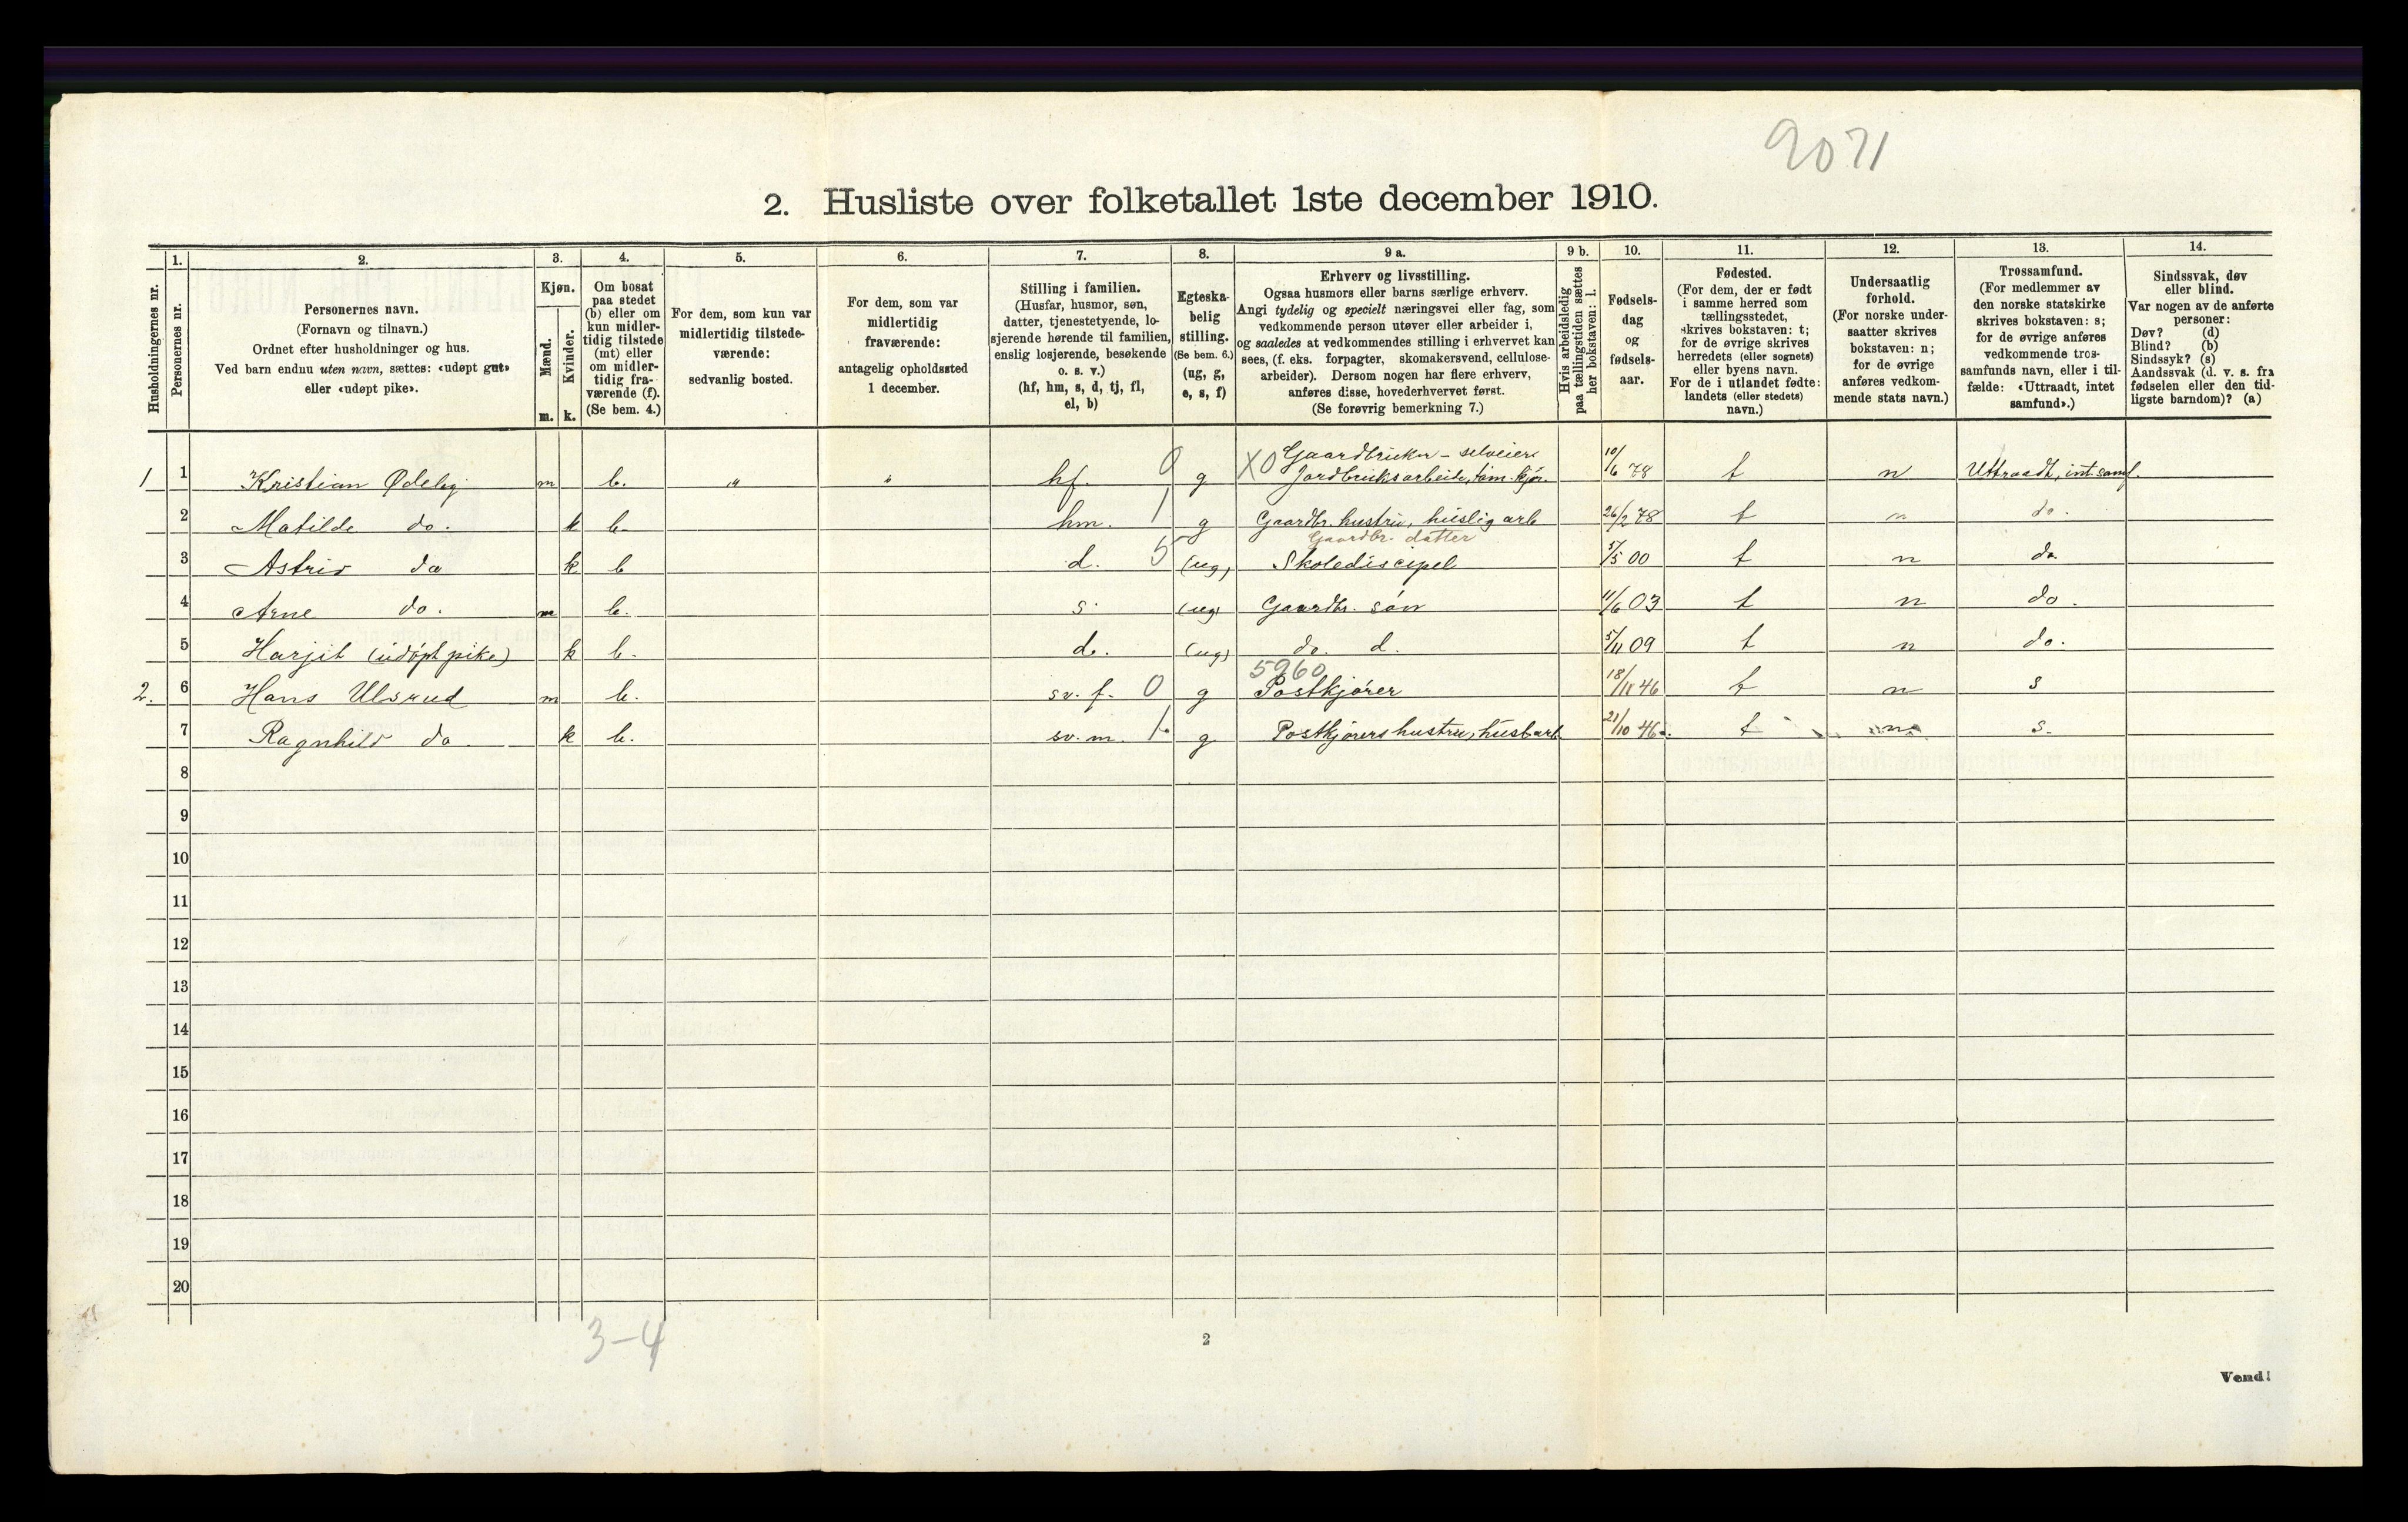 2071
2. Husliste over folketallet 1ste december 1910.
Husholdningernes nr.
1. Personernes nr.
2. Personernes navn.
(Fornavn og tilnavn.)
Ordnet efter husholdninger og hus.
Ved barn endnu uten navn, sættes: «udøpt gut»
eller «udøpt pike».
3. Kjøn.
Mænd. m.
Kvinder. k.
4. Om bosat
paa stedet
(b) eller om
kun midler-
tidig tilstede
(mt) eller
om midler-
tidig fra-
værende (f).
(Se bem. 4.)
5. For dem, som kun var
midlertidig tilstede-
værende:
sedvanlig bosted.
6. For dem, som var
midlertidig
fraværende:
antagelig opholdssted
1 december.
7. Stilling i familien.
(Husfar, husmor, søn,
datter, tjenestetyende, lo-
sjerende hørende til familien,
enslig losjerende, besøkende
o. s. v.)
(hf, hm, s, d, tj, fl,
el, b)
8. Egteska-
belig
stilling.
(Se bem. 6.)
(ug, g,
e, s, f)
9 a. Erhverv og livsstilling.
Ogsaa husmors eller barns særlige erhverv.
Angi tydelig og specielt næringsvei eller fag, som
vedkommende person utøver eller arbeider i,
og saaledes at vedkommendes stilling i erhvervet kan
sees, (f. eks. forpagter, skomakersvend, cellulose-
arbeider). Dersom nogen har flere erhverv,
anføres disse, hovederhvervet først.
(Se forøvrig bemerkning 7.)
9 b. Hvis arbeidsledig
paa tællingstiden sættes
her bokstaven: l.
10. Fødsels-
dag
og
fødsels-
aar.
11. Fødested.
(For dem, der er født
i samme herred som
tællingsstedet,
skrives bokstaven: t;
for de øvrige skrives
herredets (eller sognets)
eller byens navn.
For de i utlandet fødte:
landets (eller stedets)
navn.)
12. Undersaatlig
forhold.
(For norske under-
saatter skrives
bokstaven: n;
for de øvrige
anføres vedkom-
mende stats navn.)
13. Trossamfund.
(For medlemmer av
den norske statskirke
skrives bokstaven: s;
for de øvrige anføres
vedkommende tros-
samfunds navn, eller i til-
fælde: «Uttraadt, intet
samfund».)
14. Sindssvak, døv
eller blind.
Var nogen av de anførte
personer:
Døv? (d)
Blind? (b)
Sindssyk? (s)
Aandssvak (d. v. s. fra
fødselen eller den tid-
ligste barndom)? (a)
1 1 Kristian Ødeby m b. " " hf. 0 g X0 Gaardbruker - selveier Jordbruksarbeide, tøm. kjør. 10/6 78 t n Uttraadt, int. samf.
2 Matilde do. k b. hm. 1 g Gaardbr. hustru, huslig arb 26/2 78 t n do.
3 Astrid do k b d. 5 (ug) Gaardbr. datter Skolediscipel 5/5 00 t n do.
4 Arne do. m b. s. (ug) Gaardbr. søn 11/6 03 t n do.
5 Harjit (udøpt pike) k b. d. (ug) do. d. 5/11 09 t n do.
2. 6 Hans Ulsrud m b. sv. f. 0 g 5960 Postkjører 18/11 46 t n s
7 Ragnhild do. k b. sv. m. 1. g Postkjørers hustru, husarb. 21/10 46. t n s.
8
9
10
11
12
13
14
15
16
17
18
19
20
3-4
2
Vend!